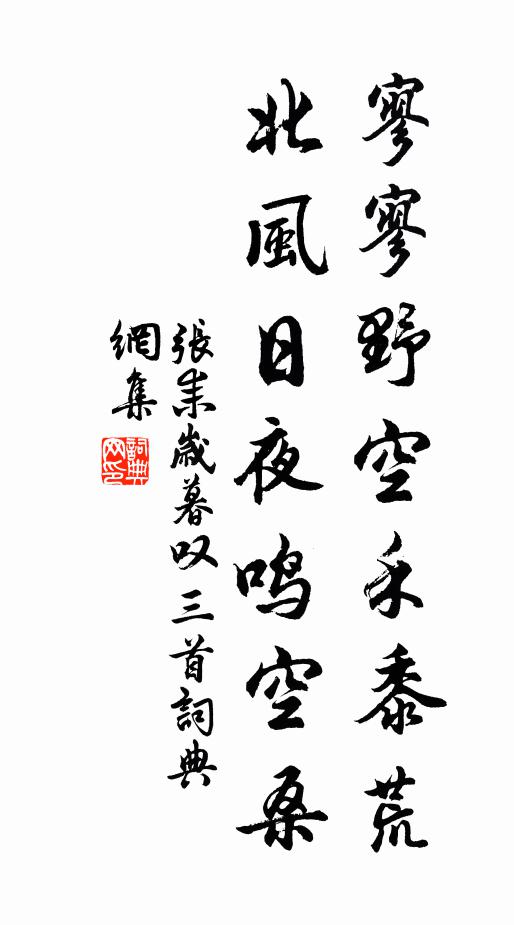 寥寥野空禾黍荒
北風日夜鳴空桑
張耒歲暮叹三首詞典
網集
詞典
网印